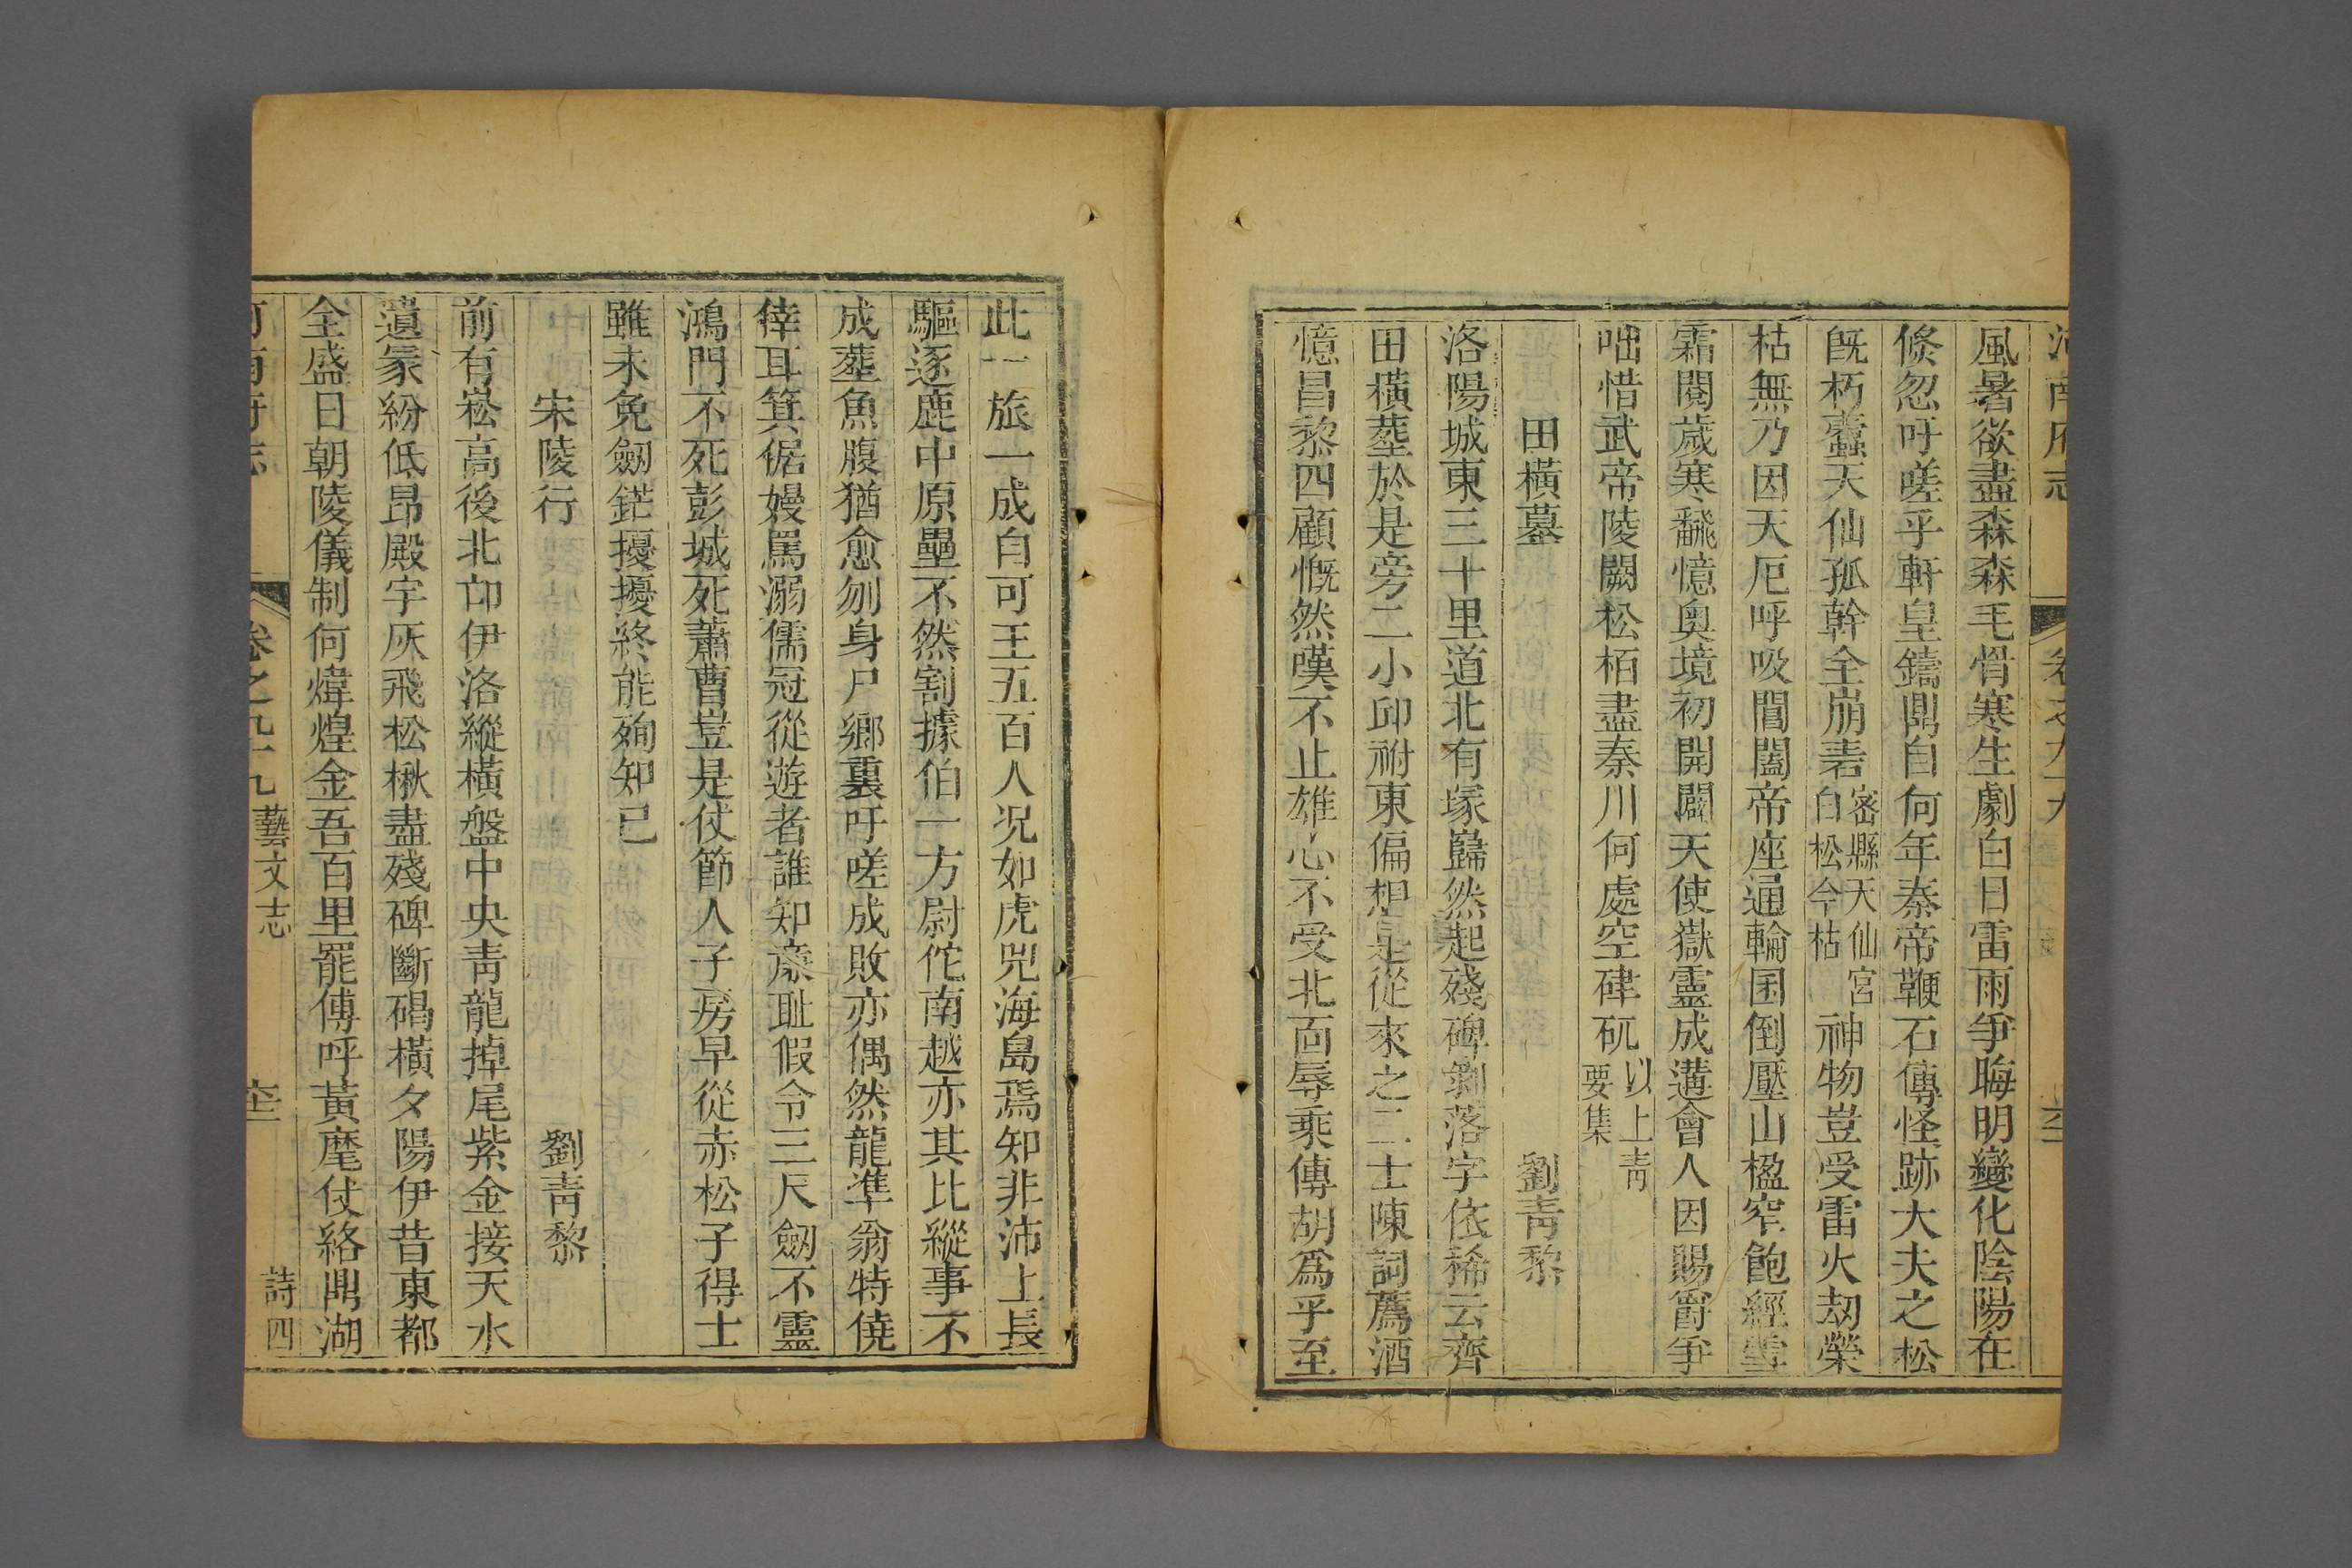 河南府志 卷之九十九
風暑欲盡森森毛骨寒生劇白日雷雨爭晦明變化陰陽在
倐忽吁嗟乎軒皇鑄鼎自何年秦帝鞭石傳怪跡大夫之松
旣朽蠹天仙孤幹全崩砉密縣天仙宮白松今枯神物豈受雷火刼榮
枯無乃因天厄呼吸閶闔帝座通輪囷倒壓山楹窄飽經雪
霜閱歲寒飜憶奧境初開闢天使嶽靈成遘會人因賜爵爭
咄惜武帝陵闕松栢盡秦川何處空硉矹以上青要集
田橫墓 劉青黎
洛陽城東三十里道北有塚巋然起殘碑剝落字依稀云齊
田橫塟於是旁二小邱祔東偏想是從來之二士陳詞薦酒
憶昌黎四顧慨然嘆不止雄心不受北面辱乘傳胡爲乎至
此一旅一成自可王五百人况如虎兕海島焉知非沛上長
驅逐鹿中原壘不然割據伯一方尉佗南越亦其比縱事不
成塟魚腹猶愈刎身尸鄉裏吁嗟成敗亦偶然龍準翁特僥
倖耳箕倨嫚罵溺儒冠從遊者誰知廉耻假令三尺劒不靈
鴻門不死彭城死蕭曹豈是仗節人子房早從赤松子得士
雖未免劒鋩擾擾終能殉知已
宋陵行 劉青黎
前有崧高後北邙伊洛縱橫盤中央青龍掉尾紫金接天水
遺冢紛低昂殿宇灰飛松楸盡殘碑斷碣橫夕陽伊昔東都
全盛日朝陵儀制何煒煌金吾百里罷傳呼黃麾仗絡鼎湖
河南府志 卷之九十九 藝文志 詩四